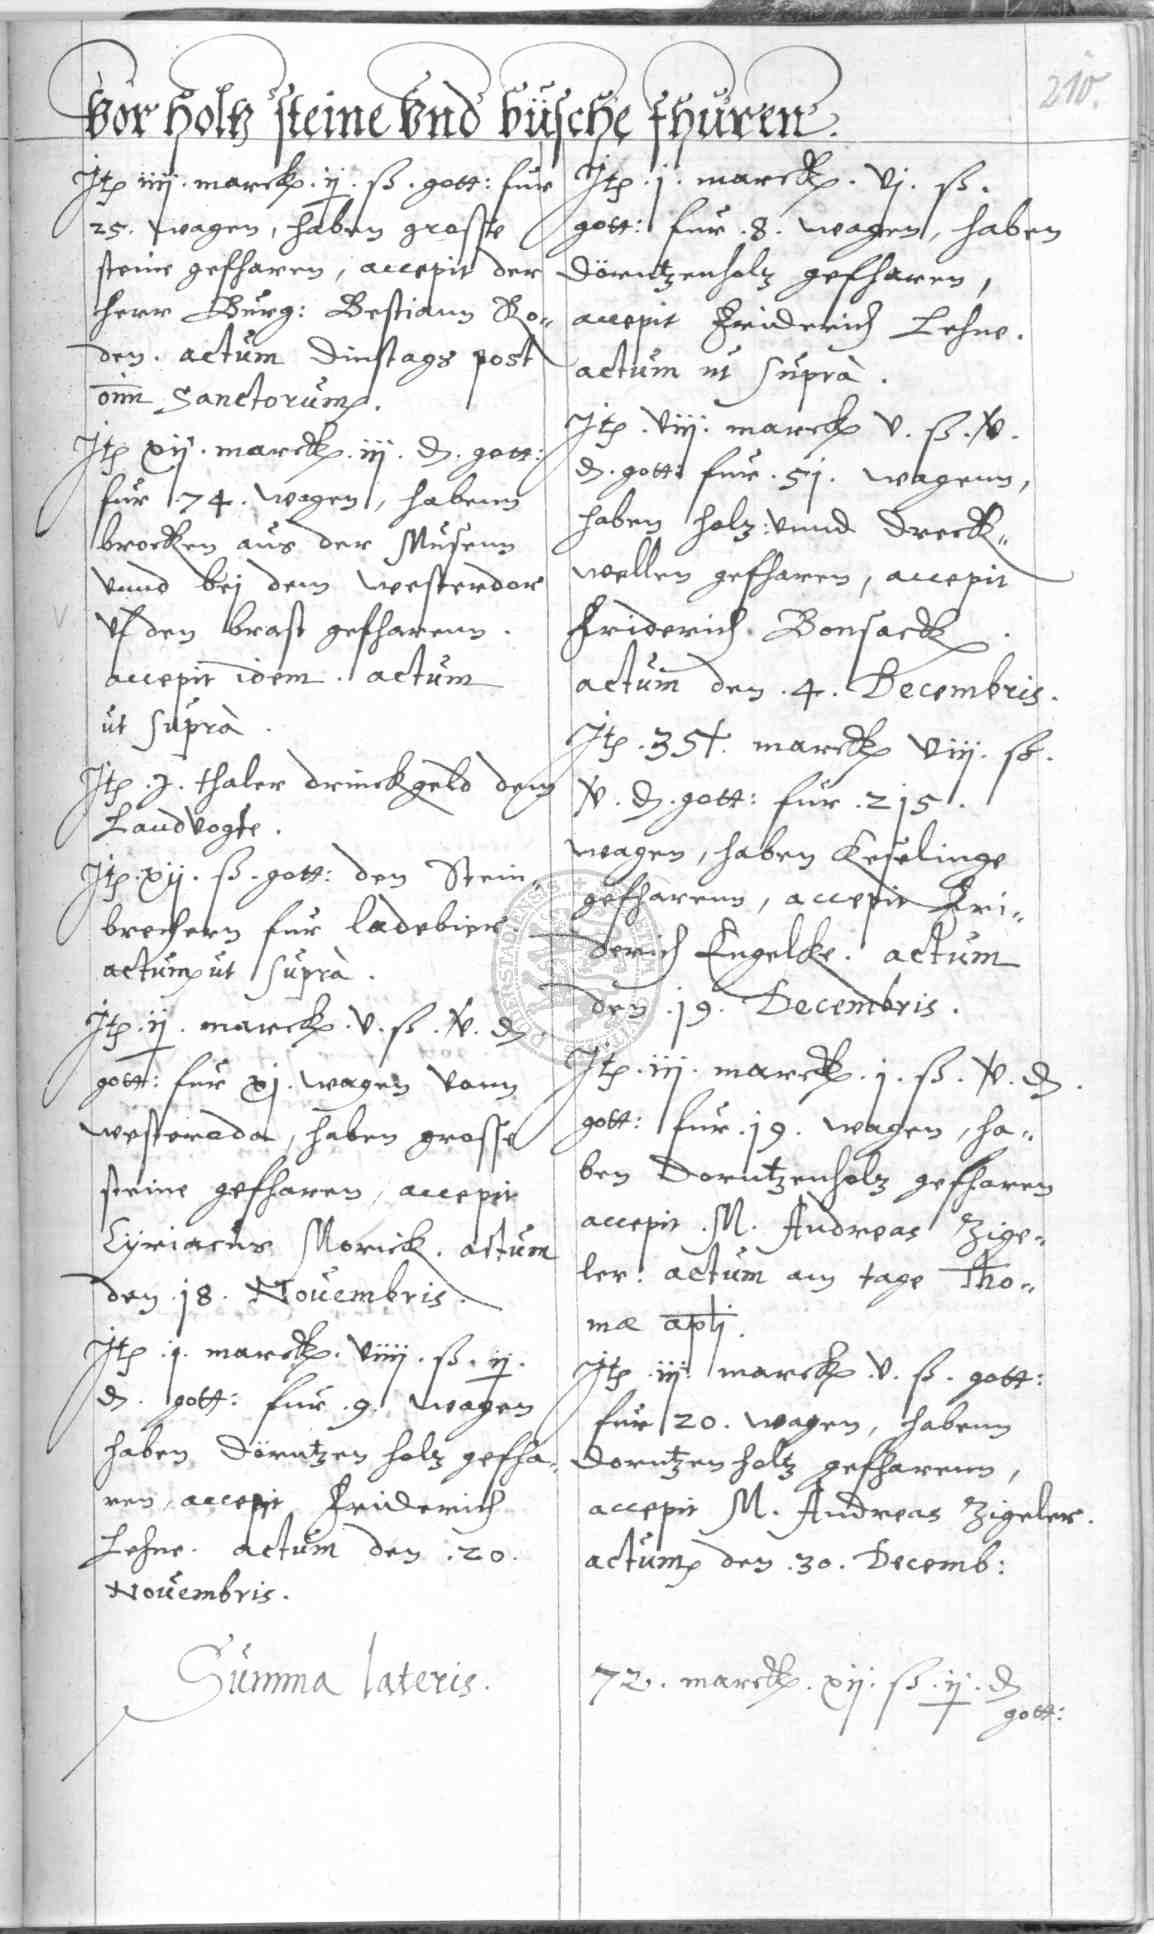 210.
Vor holtz steine Vnd büsche fhuren.
Itē iiij. marck. ij. ß. gott: fur
25. wagen, haben grosse
steine gefharen, accepit der
herr Burg: Bestiann Ro„
den. actum Dinstags post
oīm Sanctorum.
Itē xij. marck. iij. d. gott:
fur 74. wagen, habenn
brocken aus der Musenn
vnnd bej dem westerdor
vf den brast gefharenn.
accepit idem. actum
ut suprà.
Itē .j. thaler drinckgeld dem
Landvogte.
Itē .xij. ß. gott: den Stein„
brechern fur ladebier.
actum ut suprà.
Itē .ij. marck. v. ß. v. d
gott: fur xj. wagen vonn
westeroda, haben grosse
steine gefharen, accepit
Cyriacus Morick. actum
den .18. Novembris.
Itē .j. marck. viiij. ß. ij.
d. gott: fur .9. wagen
haben Dörntzen holz gefha„
ren, accepit Friderich
Lehne. actum den .20.
Novembris.
Summa lateris.
Itē .j. marck. vj. ß.
gott: fur .8. wagen, haben
Dörntzenholz gefharen,
accepit Friderich Lehne.
actum ut suprà.
Itē .viij. marck v. ß. v.
d. gott: fur .51. wagenn,
haben holz: vnnd Dreck„
wellen gefharen, accepit
Friderich Bonsack.
actum den .4. Decembris.
Itē .35. marck viij. ß.
v. d. gott: fur .215.
wagen, haben Keselinge
gefharenn, accepit Fri„
derich Engelcke. actum
den .19. Decembris.
Itē .iij. marck. j. ß. v. d.
gott: fur .19. wagen, ha„
ben Dorntzenholz gefharen
accepit M. Andreas Zige„
ler. actum am tage Tho„
mæ aplī.
Itē iij. marck v. ß. gott:
fur 20. wagen, habenn
Dorntzenholtz gefharenn,
accepit M. Andreas Zigeler.
actum den .30. Decemb:
72. marck. xij. ß. ij. d
gott: